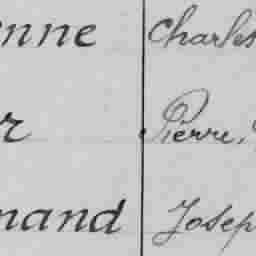 enne Charles
r Pierre,
nand Josep